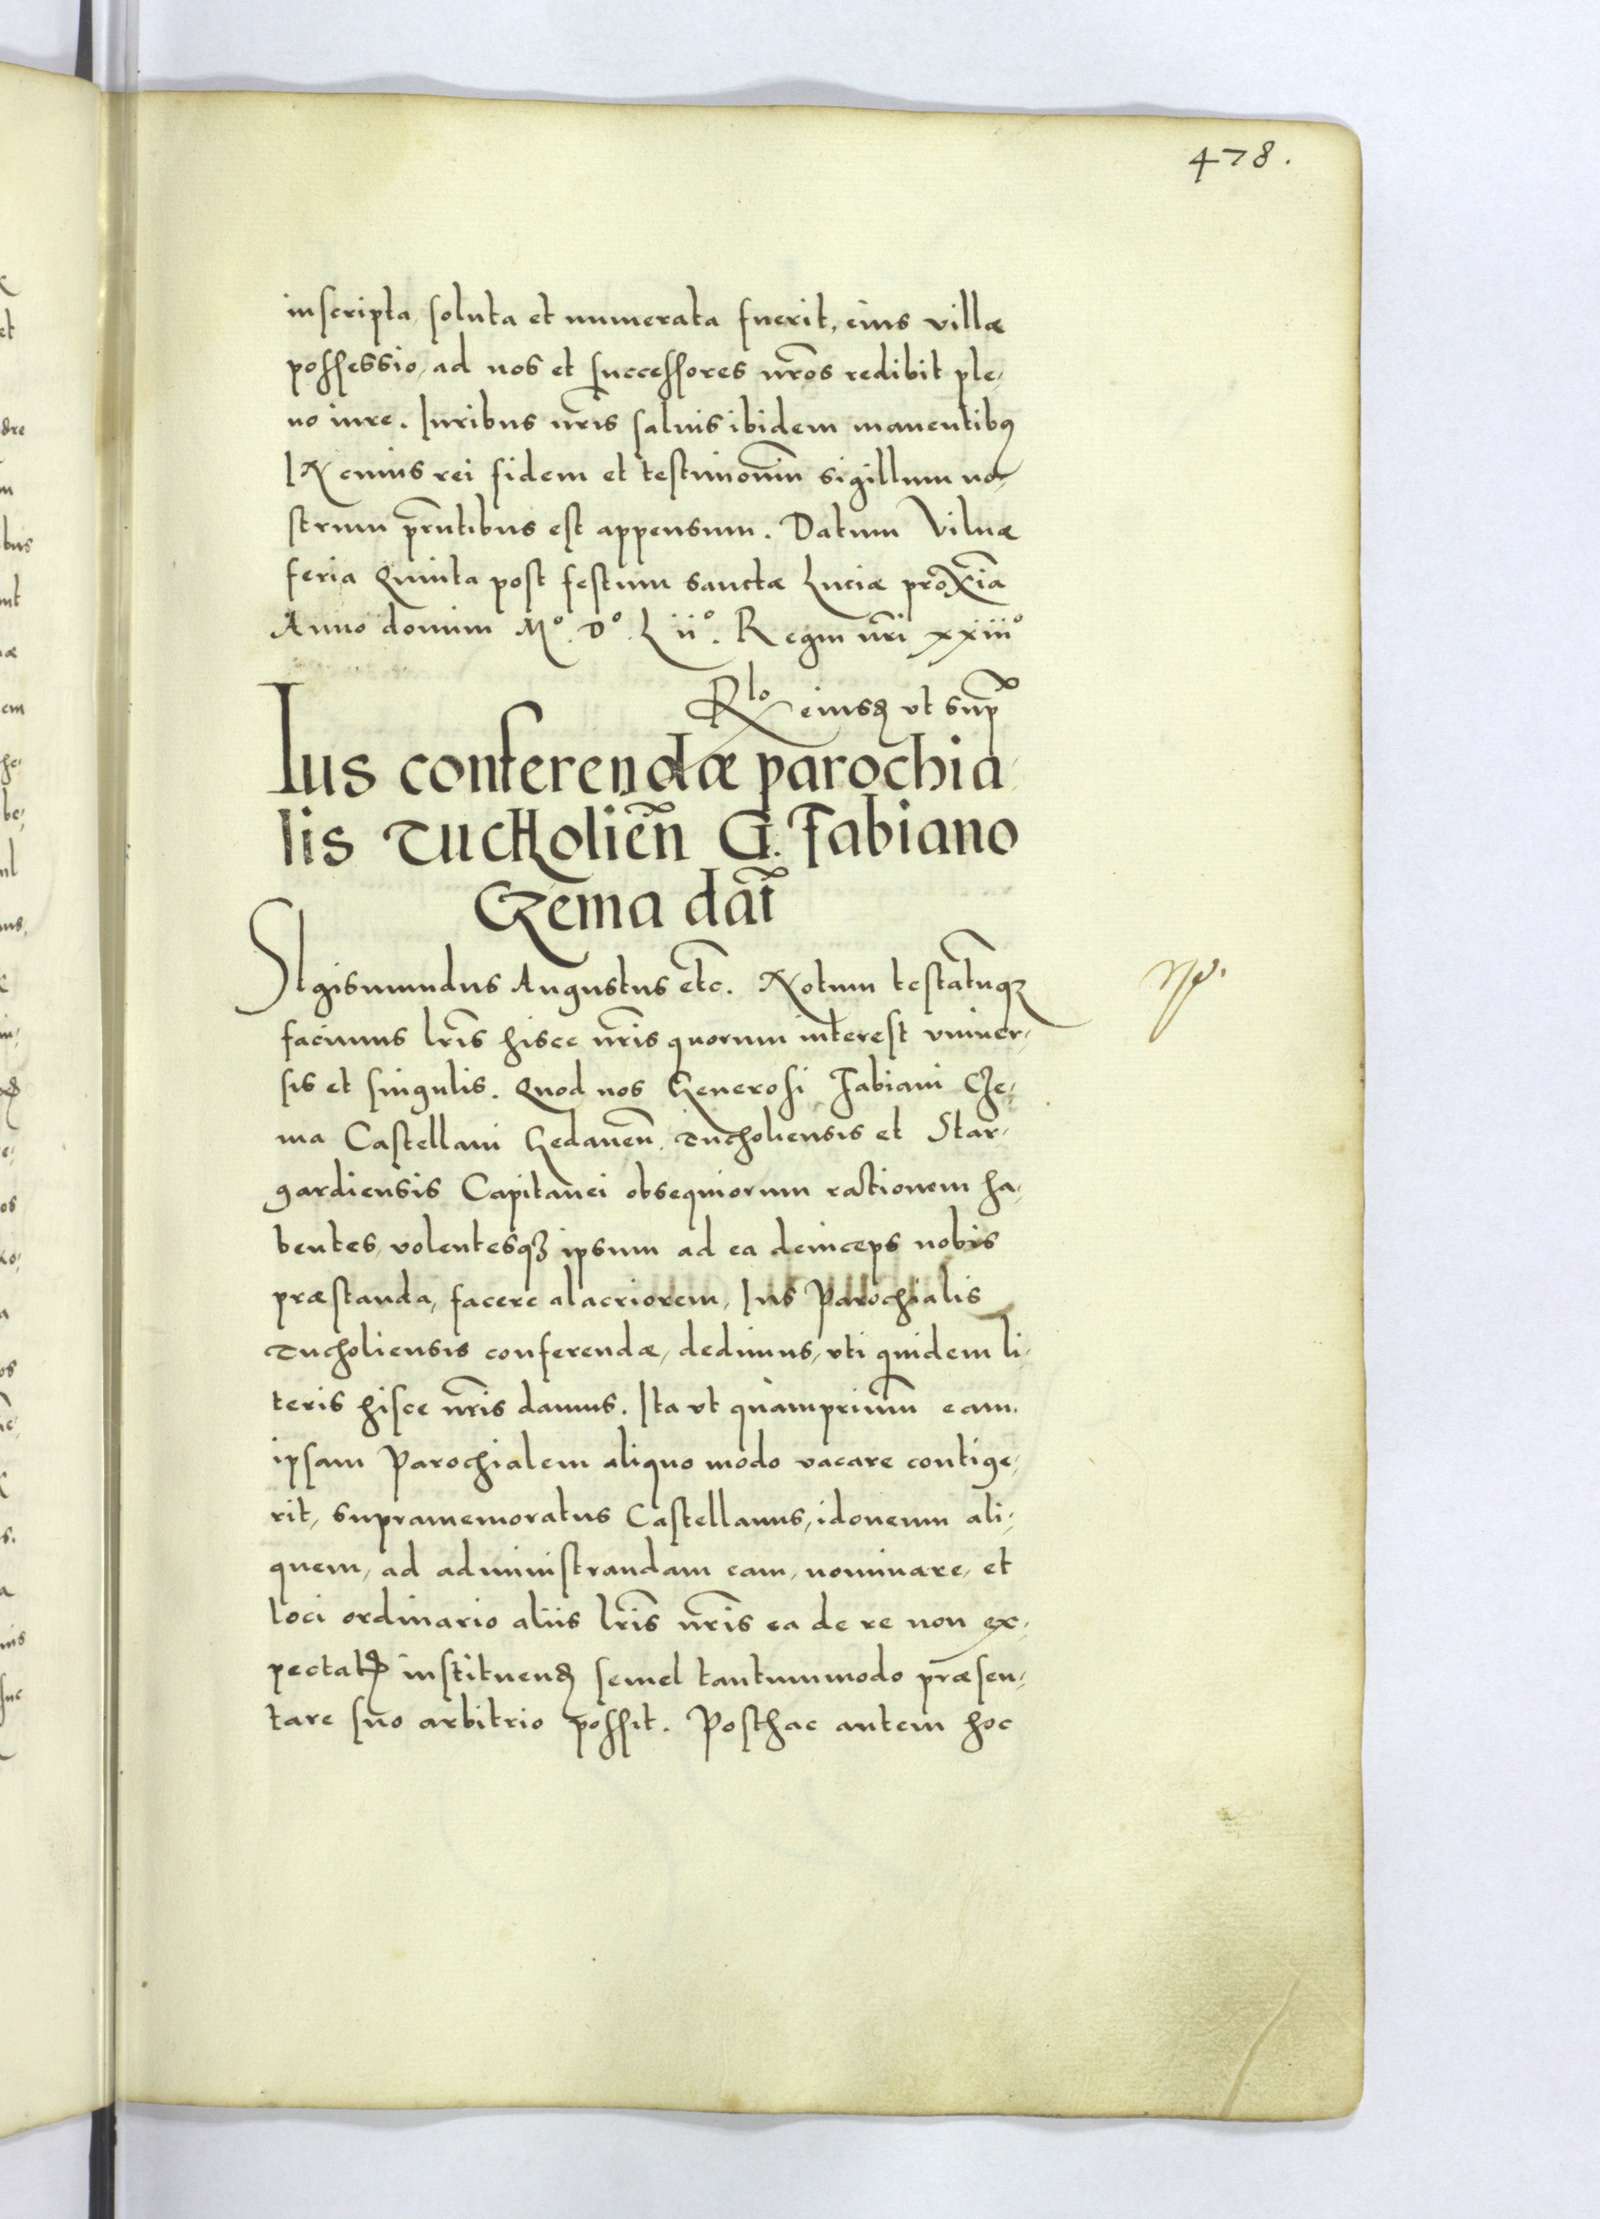 478.
inscripta, soluta et numerata fuerit, eius villæ
possessio, ad nos et successores nr̄os redibit ple,
no iure. Iuribus nr̄is saluis ibidem manentibꝯ
IN cuius rei fidem et testimoniū sigillum no,
strum pn̄tibus est appensum. Datum Vilnæ
feria Quinta post festum sanctæ Luciæ proxīa
Anno domini M.º D.º L ii.º Regni nr̄i xxiiiº
Rlo eiusd ut sup
Ius conferendæ parochia,
lis Tucholieñ G. Fabiano
Czema dat
SIgismundus Augustus etc̄. Notum testatumqꝫ
facimus lr̄is hisce nr̄is quorum interest vniuer,
sis et singulis. Quod nos Generosi Fabiani Cze,
ma Castellani Gedaneñ. Tucholiensis et Star,
gardiensis Capitanei obsequiorum rationem ha,
bentes, volentesqꝫ ipsum ad ea deinceps nobis
præstanda, facere alacriorem, Ius Parochialis
Tucholiensis conferendæ, dedimus, vti quidem li,
teris hisce nr̄is damus. Ita vt quamprimū eam
ipsam Parochialem aliquo modo vacare contige,
rit, supramemoratus Castellanus, idoneum ali,
quem, ad administrandam eam, nominare, et
loci ordinario aliis lr̄is nr̄is ea de re non ex,
pectat instituend semel tantummodo præsen,
tare suo arbitrio possit. Posthac autem hoc